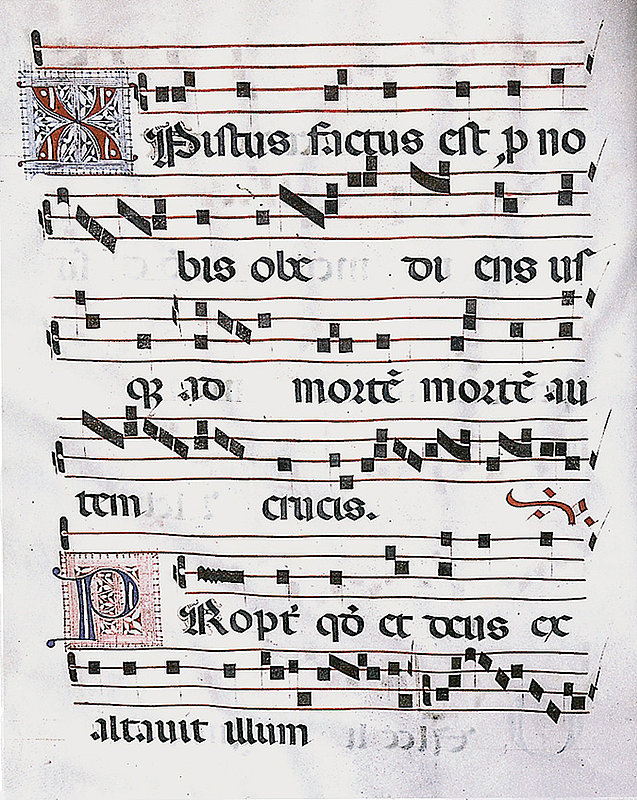 Xpistus factus est p no
bis obe di ens us
q ad mortē mortē au
tem crucis. ℣
Propt qđ et deus ex
altavit illum